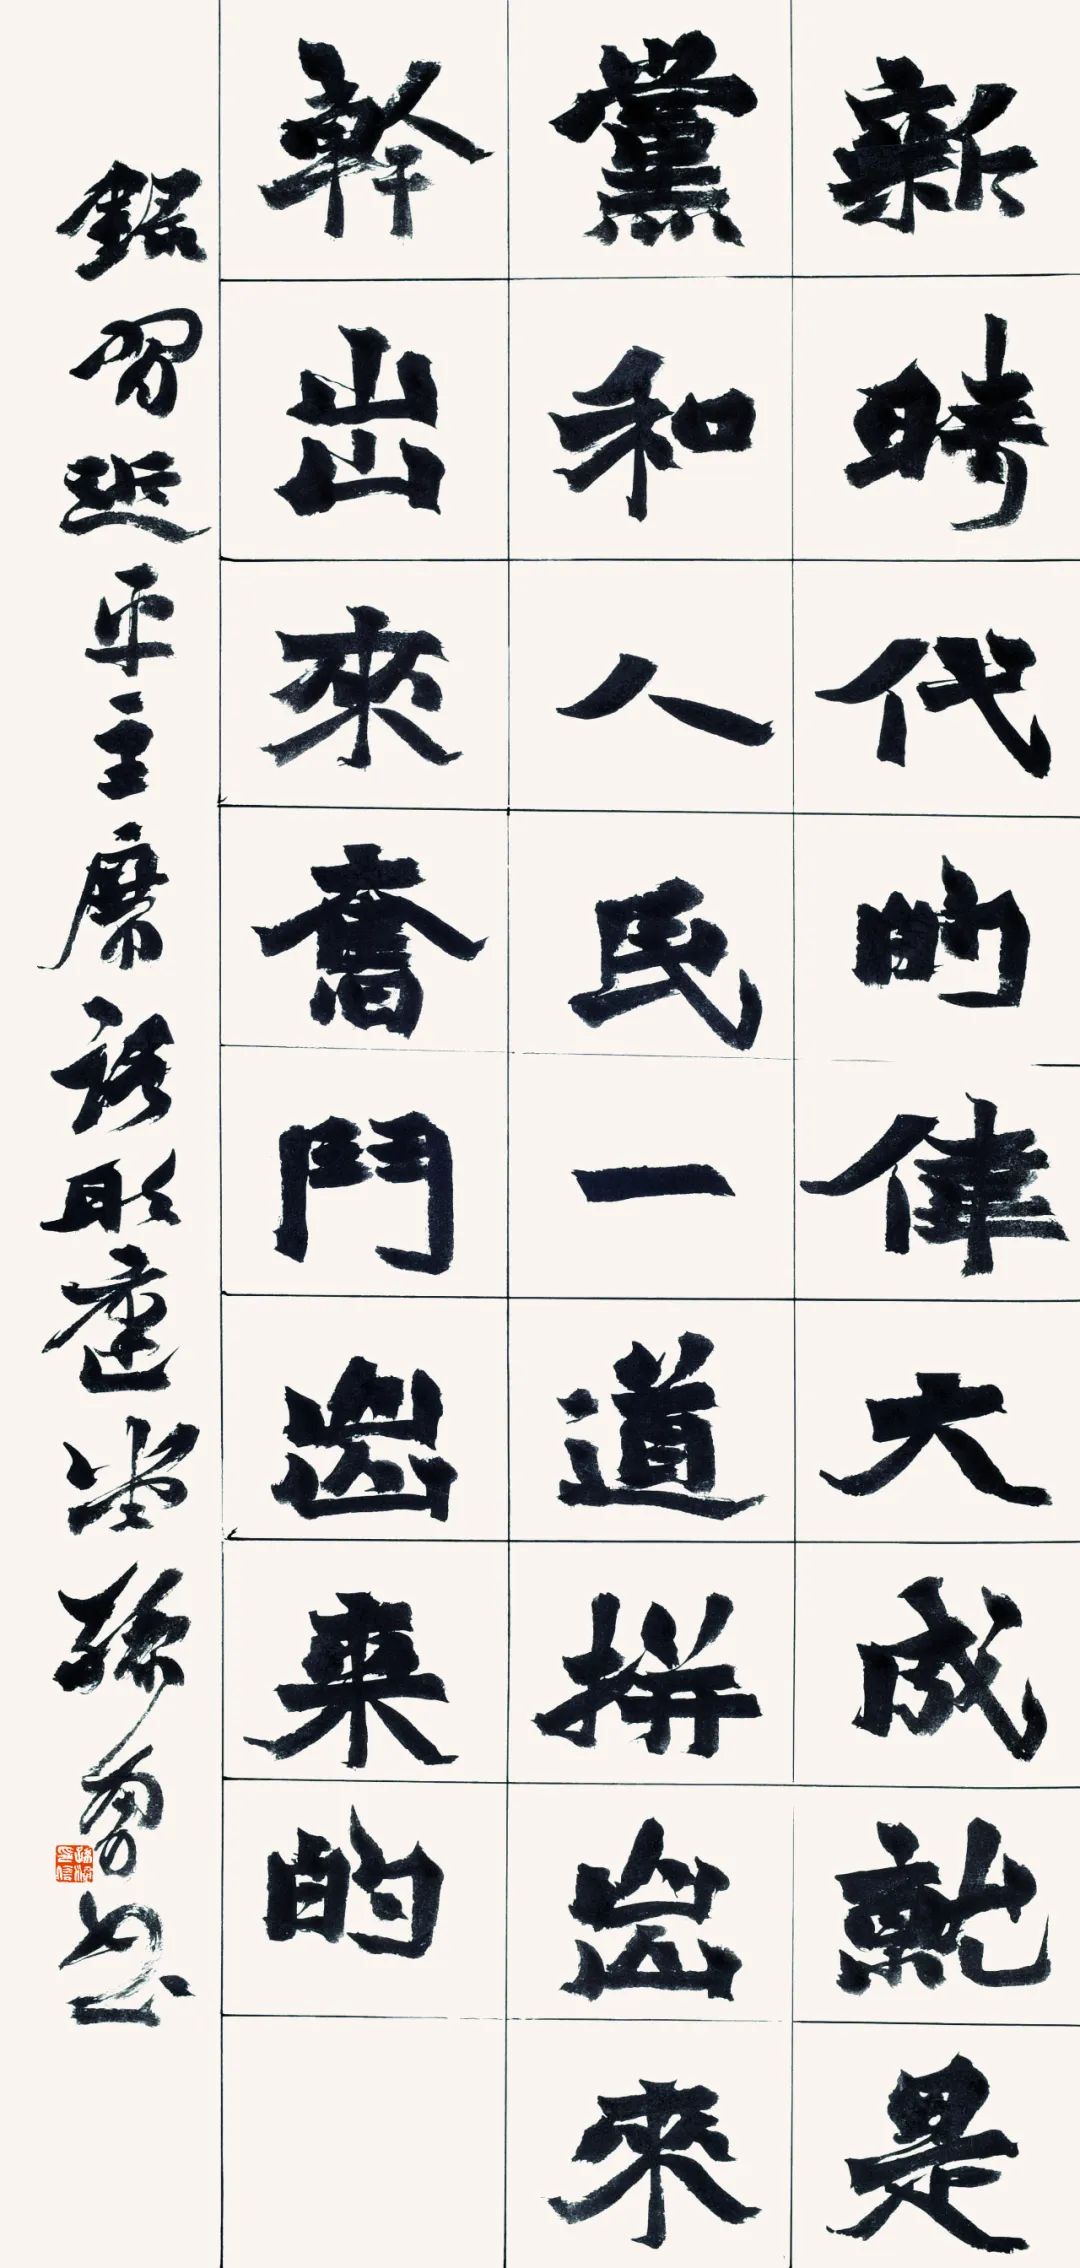 新時代的偉大成就是
黨和人民一道拼出來
幹出來奮鬥出来的
錄習近平主席語於蓮堂 孫勇書